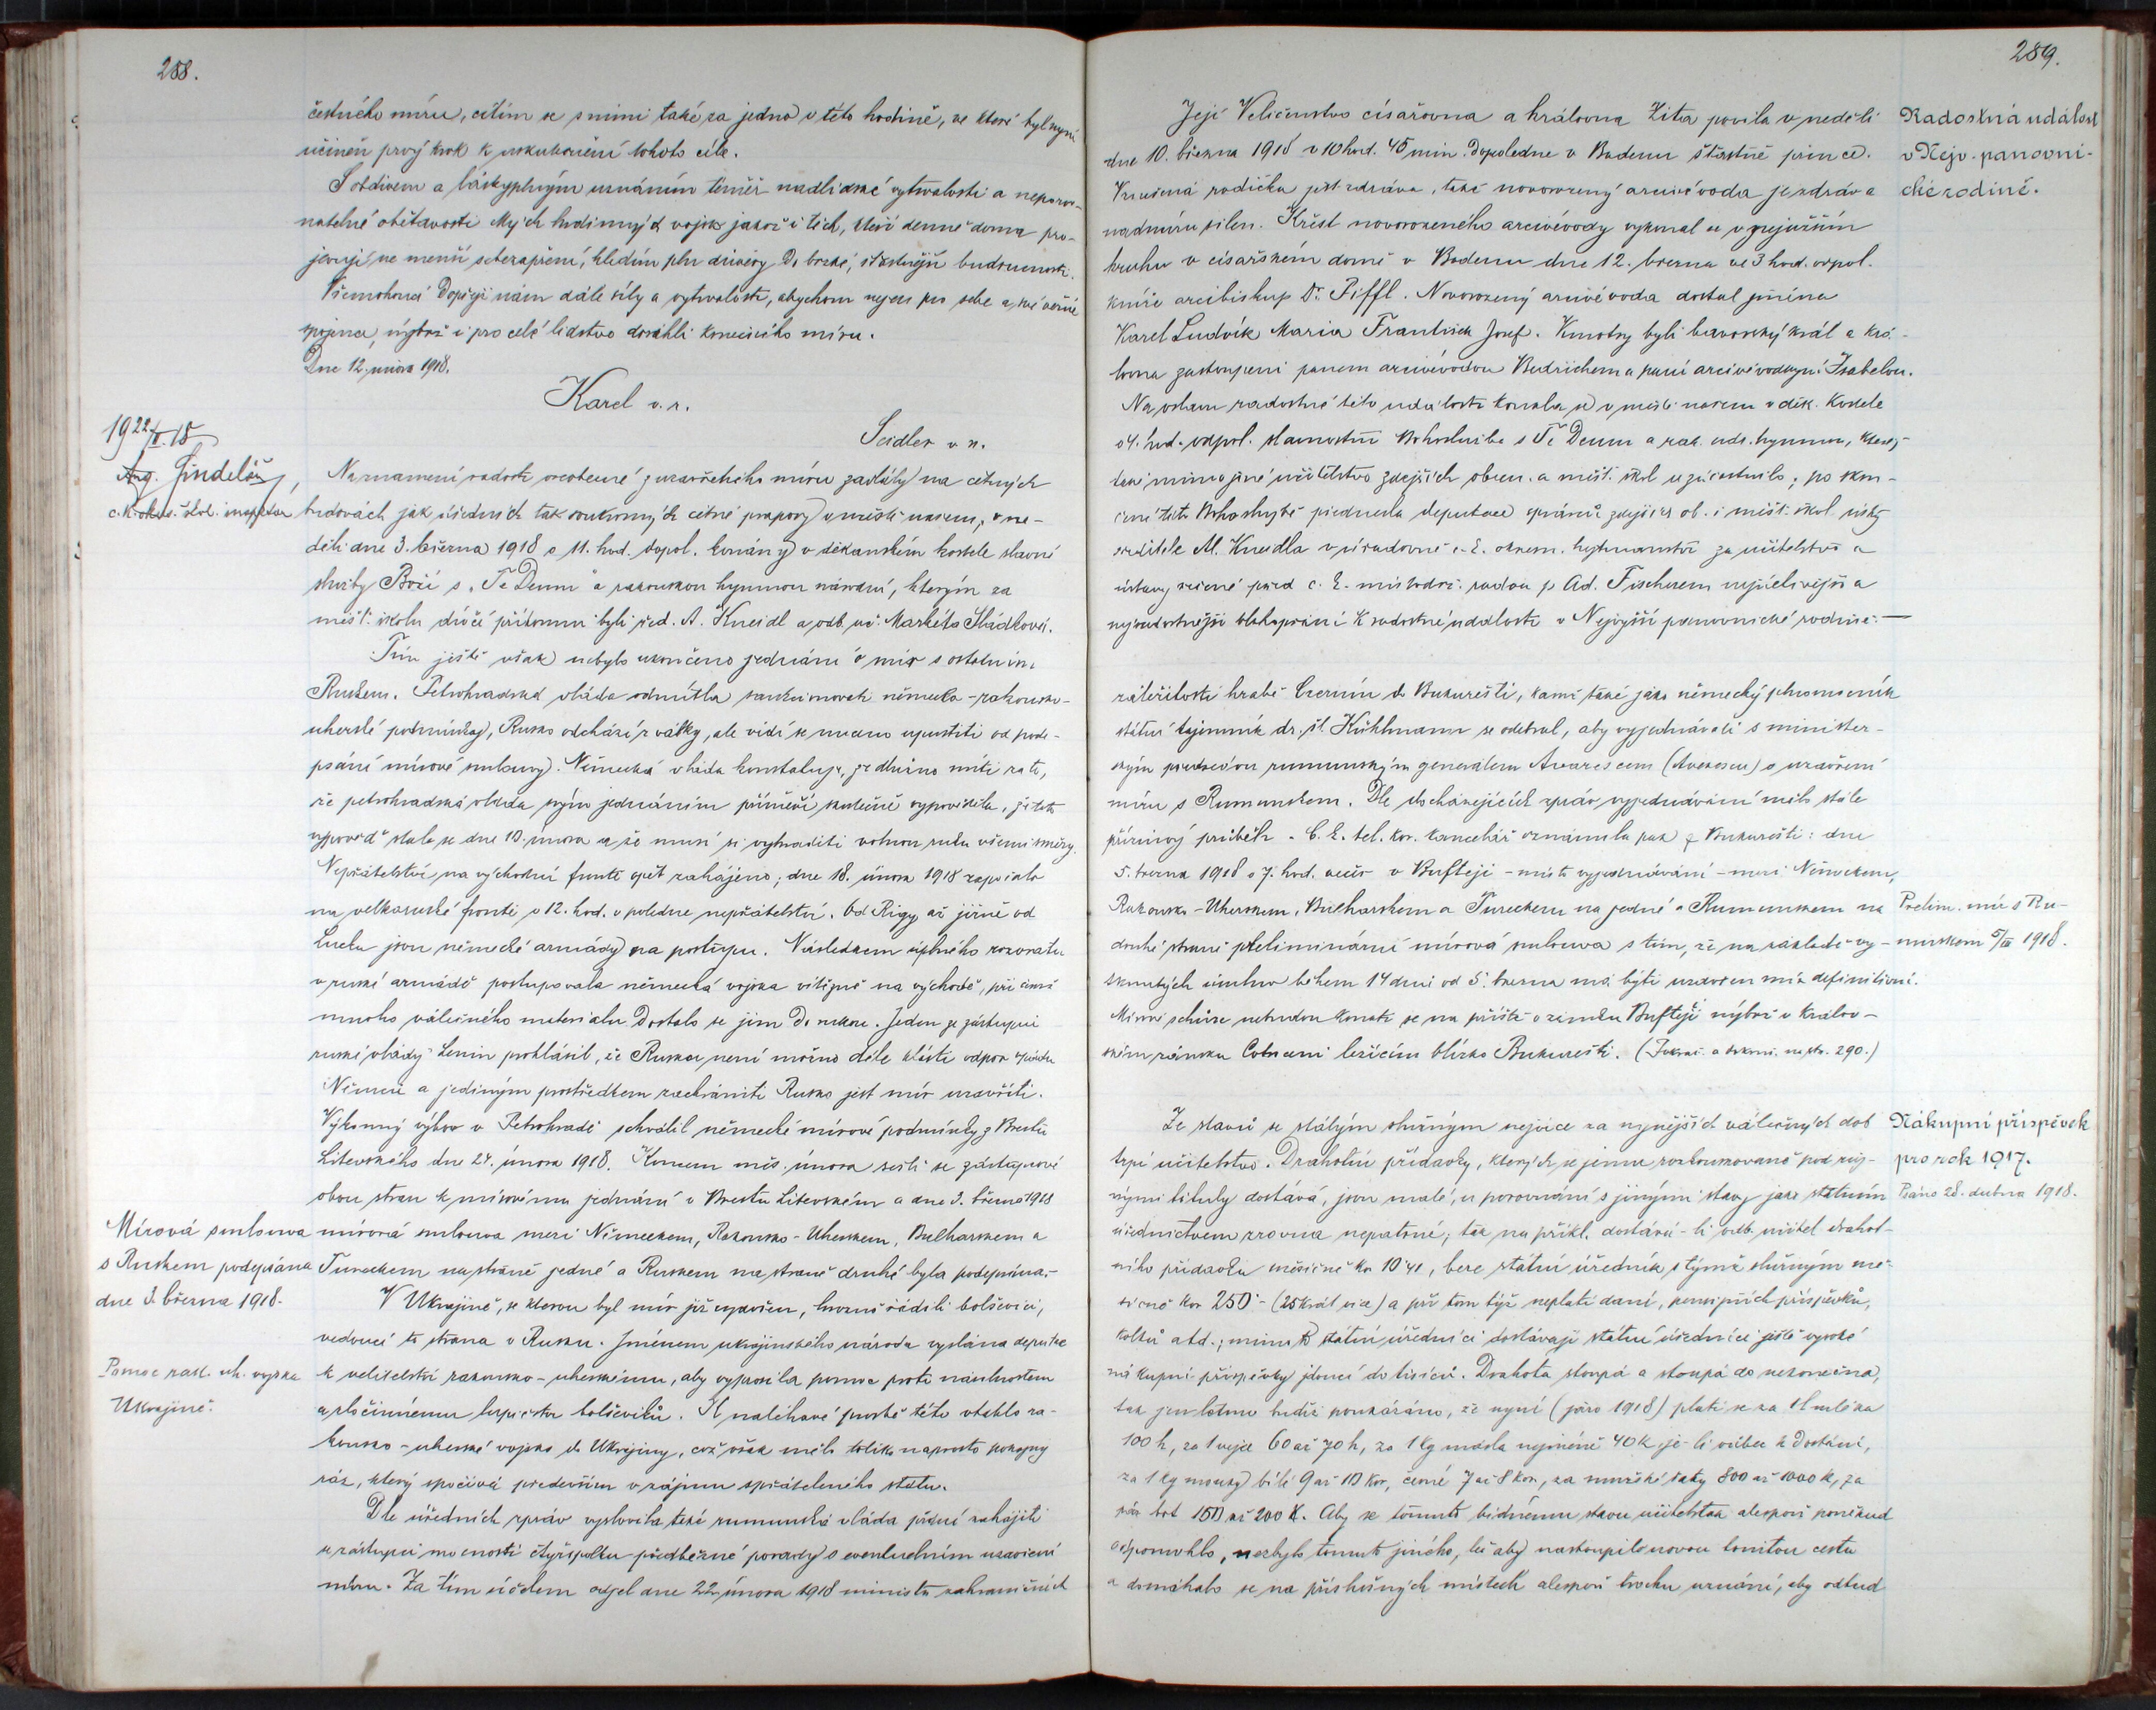 288.
čestného míru, cítím se s nimi také za jedno v této hodině, ve které byl nyní
učiněn prvý krok k uskutečnění tohoto cíle.
S obdivem a láskyplným uznáním téměř nadlidské vytrvalosti a neporov-
natelné obětavosti Mých hrdinných vojsk jakož i těch, kteří denně doma pro-
jevují ne menší sebezapření, hledím pln důvěry do brzké, šťastnější budoucnosti.
Všemohoucí dopřej nám dále síly a vytrvalosti, abychom nejen pro sebe a své věrné
spojence, nýbrž i pro celé lidstvo dosáhli konečného míru.
Dne 12. února 1918.
Karel v. r.
Seidler v. r.
1922/II. 18
Aug. Jindelář,
c. k. okres. škol. inspektor
Na znamení radosti z uzavřeného míru zavlály na četných
budovách jak úředních tak soukromých četné prapory v městě našem, v ne-
děli dne 3. března 1918 o 11. hod. dopol. konány v děkanském kostele slavné
služby Boží s „Te Deum" a rakouskou hymnou národní, kterým za
měšť. školu dívčí přítomni byli řed. A. Kneidl a odb. uč. Markéta Sládková.
Tím ještě však nebylo ukončeno jednání o mír s ostatním
Ruskem. Petrohradská vláda odmítla sankcionovati německo-rakousko-
uherské podmínky, Rusko odchází z války, ale vidí se nuceno upustiti od pode-
psání mírové smlouvy. Německá vláda konstatuje, že dlužno míti za to,
že petrohradská vláda svým jednáním příměří skutečně vypověděla, že tato
výpověď stala se dne 10. února a že musí si vyhraditi volnou ruku všemi směry.
Nepřátelství na východní frontě opět zahájeno; dne 18. února 1918 započalo
na velkoruské frontě o 12. hod. v poledne nepřátelství. Od Rigy až jižně od
Lucku jsou německé armády na postupu. Následkem úplného rozvratu
v ruské armádě postupovala německá vojska vítězně na východě, při čemž
mnoho válečného materialu dostalo se jim do rukou. Jeden ze zástupců
ruské vlády Lenin prohlásil, že Rusku není možno déle klásti odpor vpádu
Němců a jediným prostředkem zachrániti Rusko jest mír uzavříti.
Výkonný výbor v Petrohradě schválil německé mírové podmínky z Brestu
Litevského dne 24. února 1918. Koncem měs. února sešli se zástupcové
obou stran k mírovému jednání v Brestu Litevském a dne 3. března 1918
Mírová smlouva
s Ruskem podepsána
dne 3. března 1918.
mírová smlouva mezi Německem, Rakousko-Uherskem, Bulharskem a
Tureckem na straně jedné a Ruskem na straně druhé byla podepsána.-
V Ukrajině, se kterou byl mír již uzavřen, hrozně řádili bolševici,
vedoucí to strana v Rusku. Jménem ukrajinského národa vyslána deputace
Pomoc rak. uh. vojska
Ukrajině.
k velitelství rakousko-uherskému, aby vyprosila pomoc proti násilnostem
a zločinnému lupičství bolševiků. K naléhavé prosbě této vtáhlo ra-
kousko-uherské vojsko do Ukrajiny, což však mělo toliko naprosto pokojný
ráz, který spočívá především v zájmu spřáteleného státu.
Dle úředních zpráv vyslovila také rumunská vláda přání zahájiti
se zástupci mocností čtyřspolku předběžné porady o eventuelním uzavření
míru. Za tím účelem odjel dne 22. února 1918 ministr zahraničních
289.
Radostná událost
v Nejv. panovni-
cké rodině.
Její Veličenstvo císařovna a královna Zita povila v neděli
dne 10. března 1918 v 10 hod. 45 min. dopoledne v Badenu šťastně prince.
Vznešená rodička jest zdráva, také novorozený arcivévoda je zdráv a
nadmíru silen. Křest novorozeného arcivévody vykonal se v nejužším
kruhu v císařském domě v Badenu dne 12. března ve 3 hod. odpol.
kníže arcibiskup Dr. Piffl. Novorozený arcivévoda dostal jména
Karel Ludvík Maria František Josef. Kmotry byli bavorský král a krá-
lovna zastoupeni panem arcivévodou Bedřichem a paní arcivévodkyní Isabelou.
Na oslavu radostné této události konala se v městě našem v děk. kostele
o 4. hod. odpol. slavnostní bohoslužba s Te Deum a rak. nár. hymnou, které-
též mimo jiné učitelstvo zdejších obecn. a měšť. škol se zúčastnilo; po skon-
čené této bohoslužbě přednesla deputace správců zdejších ob. i měšť. škol ústy
ředitele Al. Kneidla v úřadovně c. k. okresn. hejtmanství za učitelstvo a
ústavy svěřené před c. k. místodrž. radou p. Ad. Fischerem nejuctivější a
nejradostnější blahopřání k radostné události v Nejvyšší panovnické rodině. —
záležitostí hrabě Czernín do Bukurešti, kamž také jako německý plnomocník
státní tajemník dr. šl. Kühlmann se odebral, aby vyjednávali s minister-
ským předsedou rumunským generálem Avarescem (Averescu) o uzavření
míru s Rumunskem. Dle docházejících zpráv vyjednávání mělo stále
příznivý průběh. C. k. tel. kor. kancelář oznámila pak z Bukurešti: dne
5. března 1918 o 7. hod. večer v Buftěji - místě vyjednávání - mezi Německem,
Prelim. mír s Ru-
munskem 5/III 1918.
Rakousko-Uherskem, Bulharskem a Tureckem na jedné a Rumunskem na
druhé straně preliminární mírová smlouva s tím, že na základě vy-
tknutých úmluv během 14 dní od 5. března má býti uzavřen mír definitivní.
Mírové schůze nebudou konati se na příště v zámku Buftěji nýbrž v králov-
ském zámku Cotroceni ležícím blízko Bukurešti. (Pokrač. a dokonč. na str. 290.)
Nákupní příspěvek
pro rok 1917.
Psáno 28. dubna 1918.
Ze stavů se stálým služným nejvíce za nynějších válečných dob
trpí učitelstvo. Drahotní přídavky, kterých se jemu rozkouskovaně pod růz-
nými tituly dostává, jsou malé, u porovnání s jinými stavy jako státním
úřednictvem zrovna nepatrné; tak na příkl. dostává-li odb. učitel drahot-
ního přídavku měsíčně Kor 10·41, bere státní úředník s týmž služným mě-
síčně Kor 250·- (25krát více) a při tom týž neplatí daní, pensijních příspěvků,
kolků atd.; mimo to státní úředníci dostávají státní úředníci ještě vysoké
nákupní příspěvky jdoucí do tisíců. Drahota stoupá a stoupá do nekonečna,
tak jen letmo budiž poukázáno, že nyní (jaro 1918) platí se za 1 l mléka
100 h, za 1 vejce 60 až 70 h, za 1 kg másla nejméně 40 K, je-li vůbec k dostání,
za 1 kg mouky bílé 9 až 10 Kor, černé 7 až 8 kor, za mužské šaty 800 až 1000 K, za
pár bot 150 až 200 K. Aby se tomuto bídnému stavu učitelstva alespoň poněkud
odpomohlo, nezbylo tomuto jiného, leč aby nastoupilo novou trnitou cestu
a domáhalo se na příslušných místech alespoň trochu uznání, aby odtud